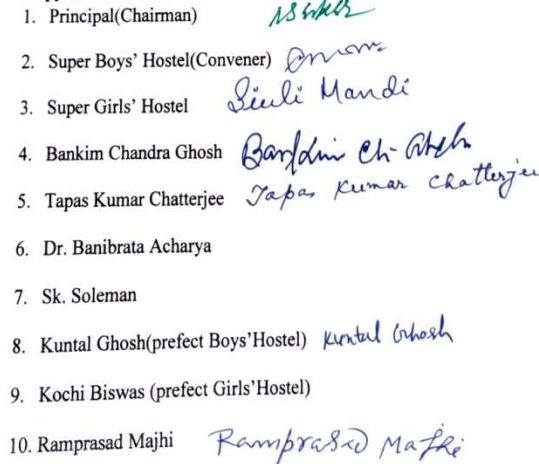 1. Principal(Chairman)
2. Super Boys' Hostel(Convener)
3. Super Girls' Hostel Siuli Mandi
4. Bankim Chandra Ghosh Bankim Ch. Ghosh
5. Tapas Kumar Chatterjee Tapas Kumar Chatterjee
6. Dr. Banibrata Acharya
7. Sk. Soleman
8. Kuntal Ghosh(prefect Boys'Hostel) Kuntal Ghosh
9. Kochi Biswas (prefect Girls'Hostel)
10. Ramprasad Majhi Ramprasad Majhi